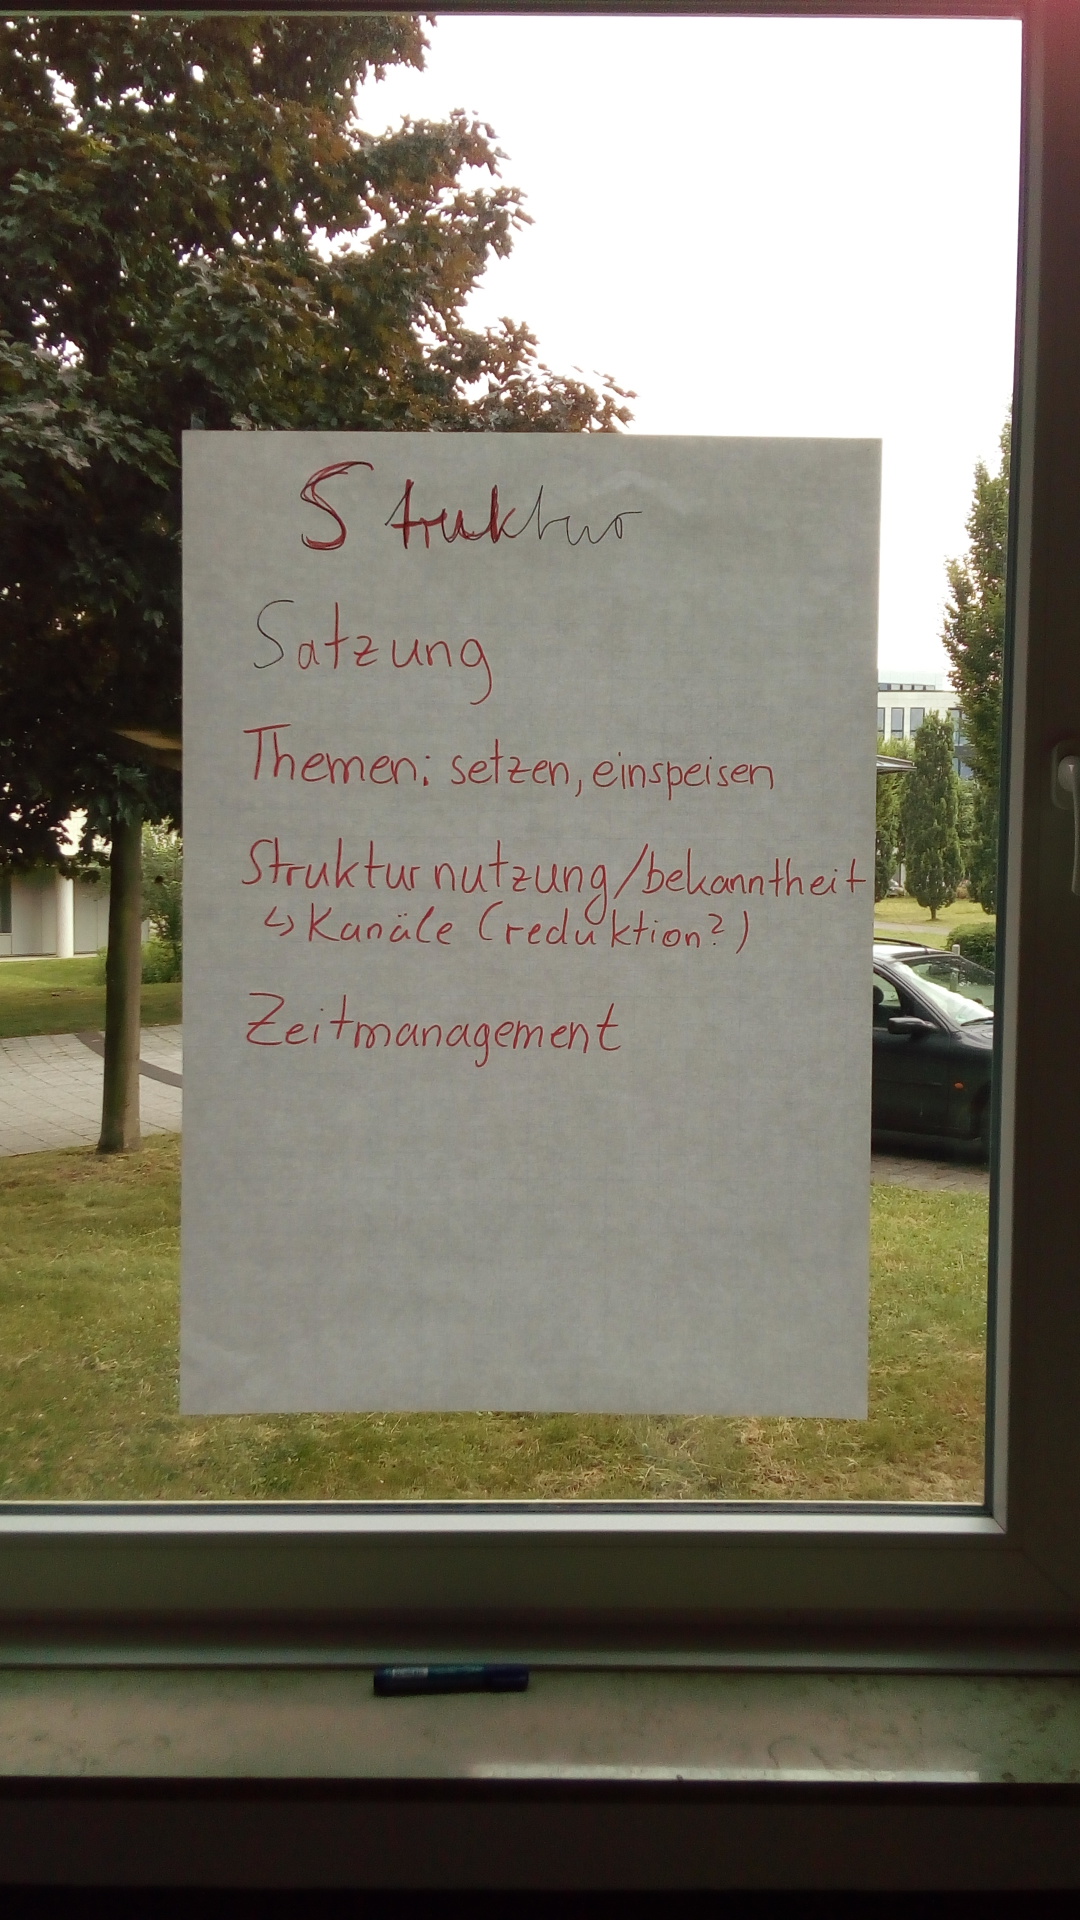 Struktur
Satzung
Themen: setzen, einspeisen
Strukturnutzung/bekanntheit
↳ Kanäle (reduktion?)
Zeitmanagement